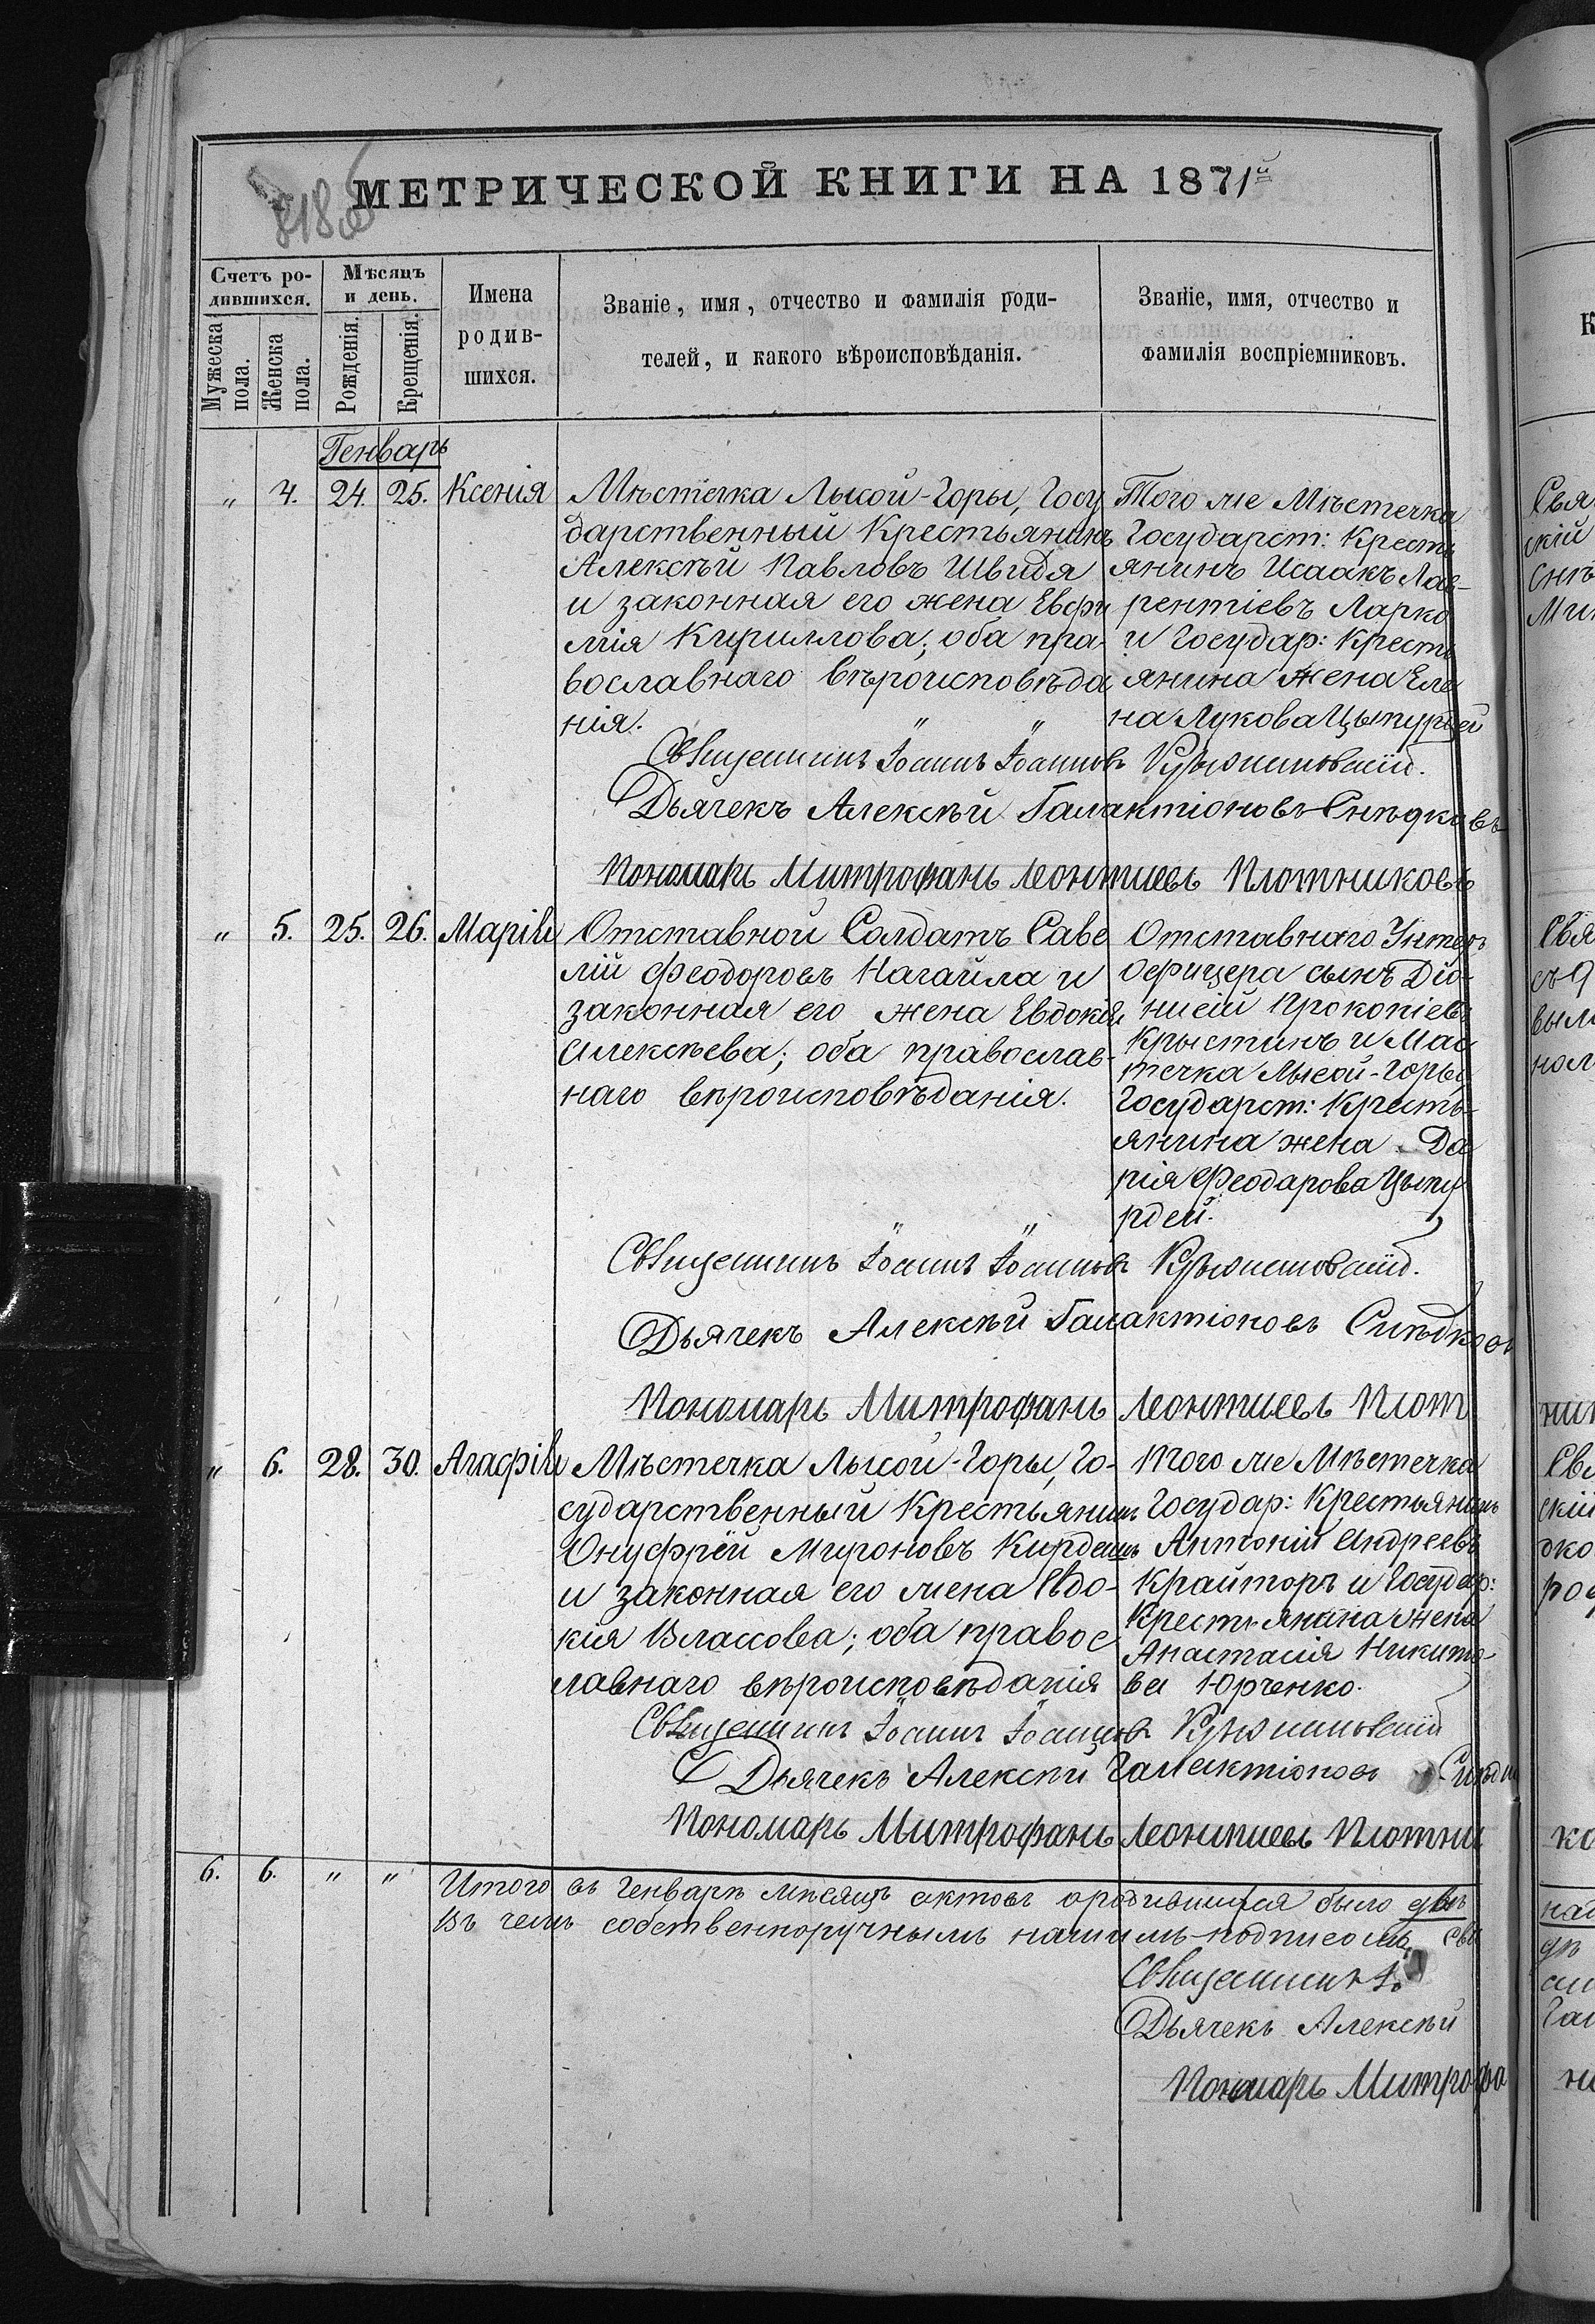 МЕТРИЧЕСКОЙ КНИГИ НА 1871й
Счетъ ро-
дившихся.
Мѣсяцъ
и день.
Мужеска
пола.
Женска
пола.
Рожденія.
Крещенія.
Имена
родив-
шихся.
Званіе, имя, отчество и фамилія роди-
телей, и какого вѣроисповѣданія.
Званіе, имя, отчество и
фамилія воспріемниковъ.
Генварь
" 4. 24. 25. Ксенія
Мѣстечка Лысой-Горы, Госу
дарственный Крестьянинъ
Алексѣй Павловъ Швидя
и законная его жена Евфи
мія Кириллова; оба пра-
вославнаго вѣроисповѣда
нія. " "
Того же Мѣстечка
Государст: Кресть
янинъ Исаакъ Лав-
рентіевъ Ларко
и Государ: Кресть
янина жена Еле
на Лукова Цыпурдей
Священникъ Іоаннъ Іоанновъ
Дьячекъ Алексѣй Галактіоновъ Снѣдковъ
Пономарь Митрофанъ Леонтиевъ Плотниковъ
" 5. 25. 26. Марія
Отставной Солдатъ Саве
лій Феодоровъ Нагайла и
законная его жена Евдокія
Алексѣева; оба православ-
наго вѣроисповѣданія.
" "
Отставнаго Унтеръ
Офицера сынъ Діо-
нисій Прокопіевъ
Крыстинъ и Мѣс
течка Лысой-Горы
Государст: Кресть-
янина жена Да
рія Феодарова Цыпу
рдей.
Священникъ Іоаннъ Іоанновъ
Дьячекъ Алексѣй Галактіоновъ Снѣдковъ
Пономарь Митрофанъ Леонтиевъ Плот
" 6. 28. 30. Агафія
Мѣстечка Лысой-Горы, Го-
сударственный Крестьянинъ
Онуфрій Мироновъ Кирдешъ
и законная его жена Евдо-
кія Власова; оба правос
лавнаго вѣроисповѣданія
Того же Мѣстечка
Государ: Крестьянинъ
Антоній Андреевъ
Крайторъ и Государ:
Крестьянина жена
Анастасія Никито-
ва Юрченко.
Священникъ Іоаннъ Іоанновъ
Дьячекъ Алексѣй Галактіоновъ
Пономарь Митрофанъ Леонтиевъ Плотни
6. 6. " " Итого въ Генварѣ мѣсяцѣ актовъ о родившихся было двѣ
Въ чемъ собственноручнымъ нашимъ подписомъ сви
Священникъ І
Дьячекъ Алексѣй
Пономарь Митрофа